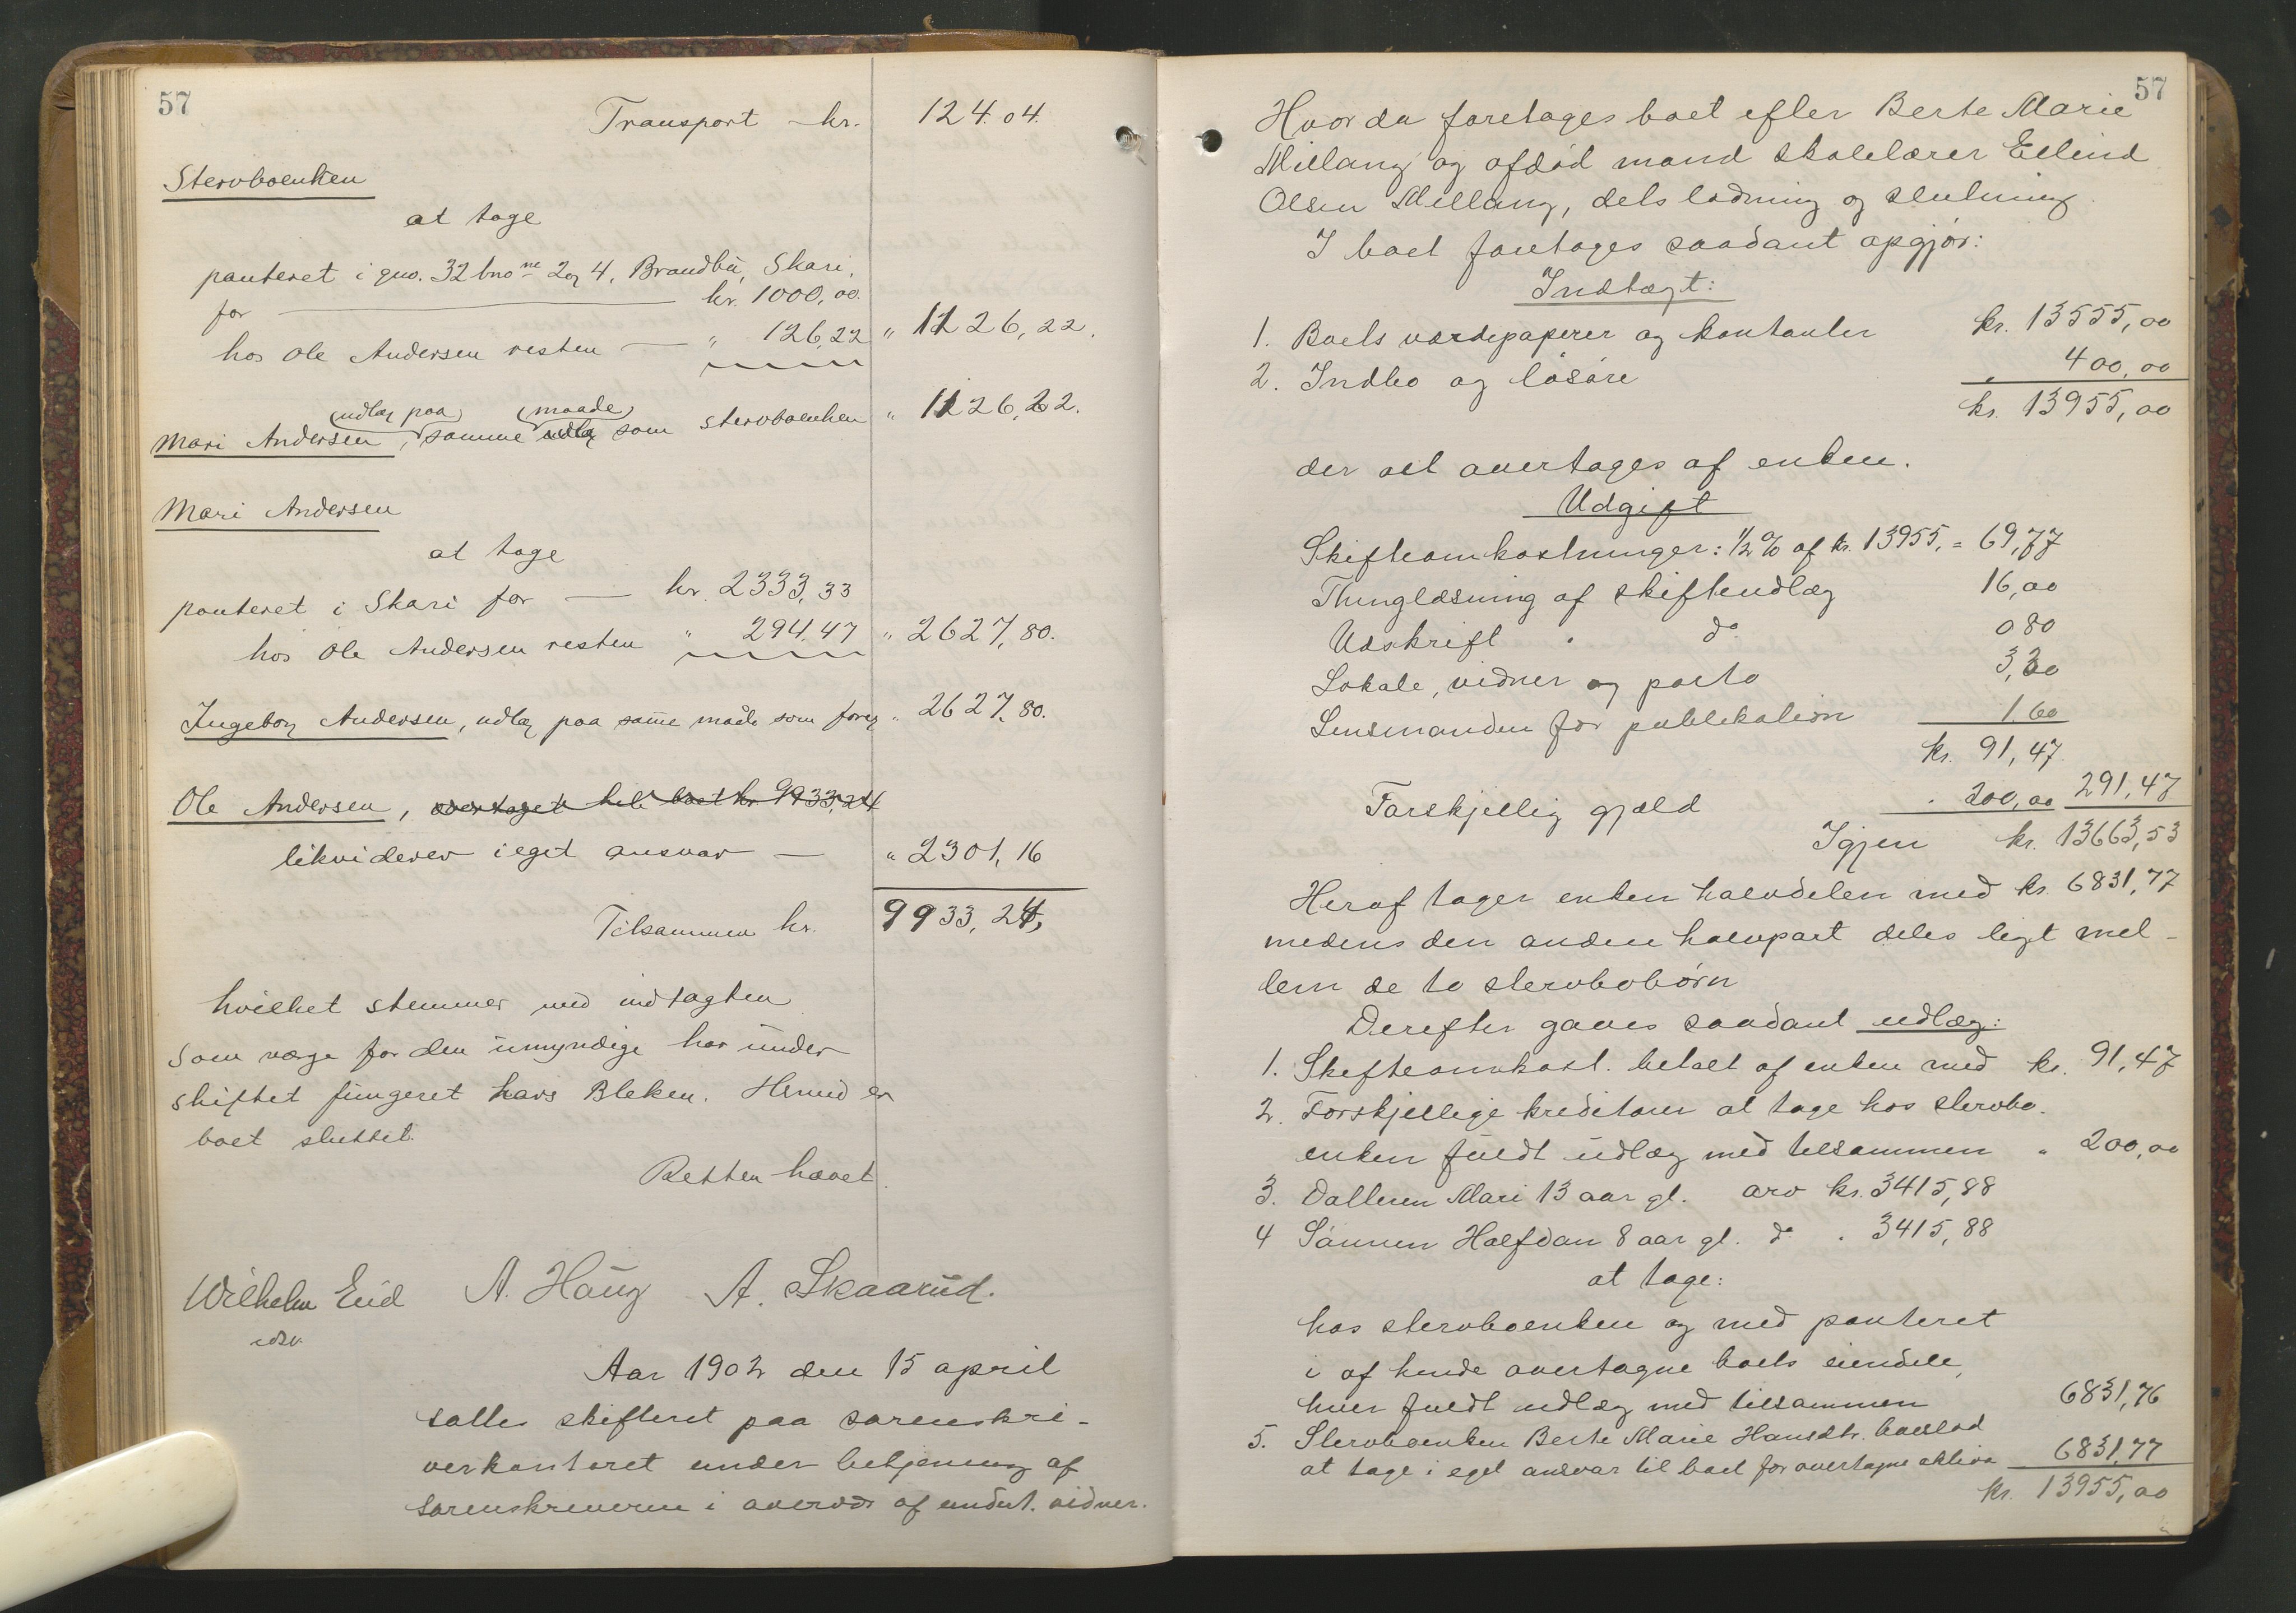 57
Transport kr. 124.04.
Stervboenken
at tage
panteret i gno. 32 bno ne 2 og 4, Brandbu, Skari,
for kr. 1000,00.
hos Ole Andersen resten — " 126,22 " 1126,22.
(udlæg paa) (maade)
Mari Andersen, samme udlæg som stervboenken " 1126,22.
Mari Andersen
at tage
panteret i Skari for — kr. 2333,33
hos Ole Andersen resten " 294.47 " 2627,80.
Ingeborg Andersen, udlæg paa samme måde som foreg. " 2627,80.
Ole Andersen, overtaget hele boet kr 9933,24
likviderer i eget ansvar — " 2301,16
Tilsammen kr. 9933,24,
hvilket stemmer med indtægten
Som værge for den umyndige har under
skiftet fungeret Lars Bleken. Hermed er
boet sluttet.
Retten hævet.
Wilhelm Eid A. Haug A. Skaarud.
edsv.
Aar 1902 den 15 april
sattes skifteret paa sorenskri-
verkontoret under betjening af
sorenskriveren i overvær af undert. vidner.
57
Hvor da foretages boet efter Berte Marie
Millang og afdød mand skolelærer Eilind
Olsen Millang, dets lodning og slutning
I boet foretages saadant opgjør:
Indtægt:
1. Boets værdepapirer og kontanter kr. 13555,00
2. Indbo og løsøre " 400,00
kr. 13955,00
der alt overtages af enken.
Udgift
Skifteomkostninger: ½% af kr. 13955, = 69,77
Thinglæsning af skifteudlæg 16,00
Udskrift " do 0 80
Lokale, vidner og porto 3,30
Lensmanden for publikation 1,60
kr. 91,47
Forskjellig gjæld " 200,00 291,47
Igjen kr. 13663,53
Heraf tager enken halvdelen med kr. 6831,77
medens den anden halvpart deles ligt mel-
lem de to stervbobørn
Derefter gaves saadant udlæg:
1. Skifteomkost. betalt af enken med kr. 91,47
2. Forskjellige kreditorer at tage hos stervbo-
enken fuldt udlæg med tilsammen " 200,00
3. Datteren Mari 13 aar gl. arv kr. 3415,88
4 Sønnen Halfdan 8 aar gl. do " 3415,88
at tage:
hos stervboenken og med panteret
i af hende overtagne boets eiendele,
hver fuldt udlæg med tilsammen 6831,76
5. Stervboenken Berte Marie Hansdtr. boeslod
at tage i eget ansvar til boet for overtagne aktiva 6831,77
kr. 13955,00